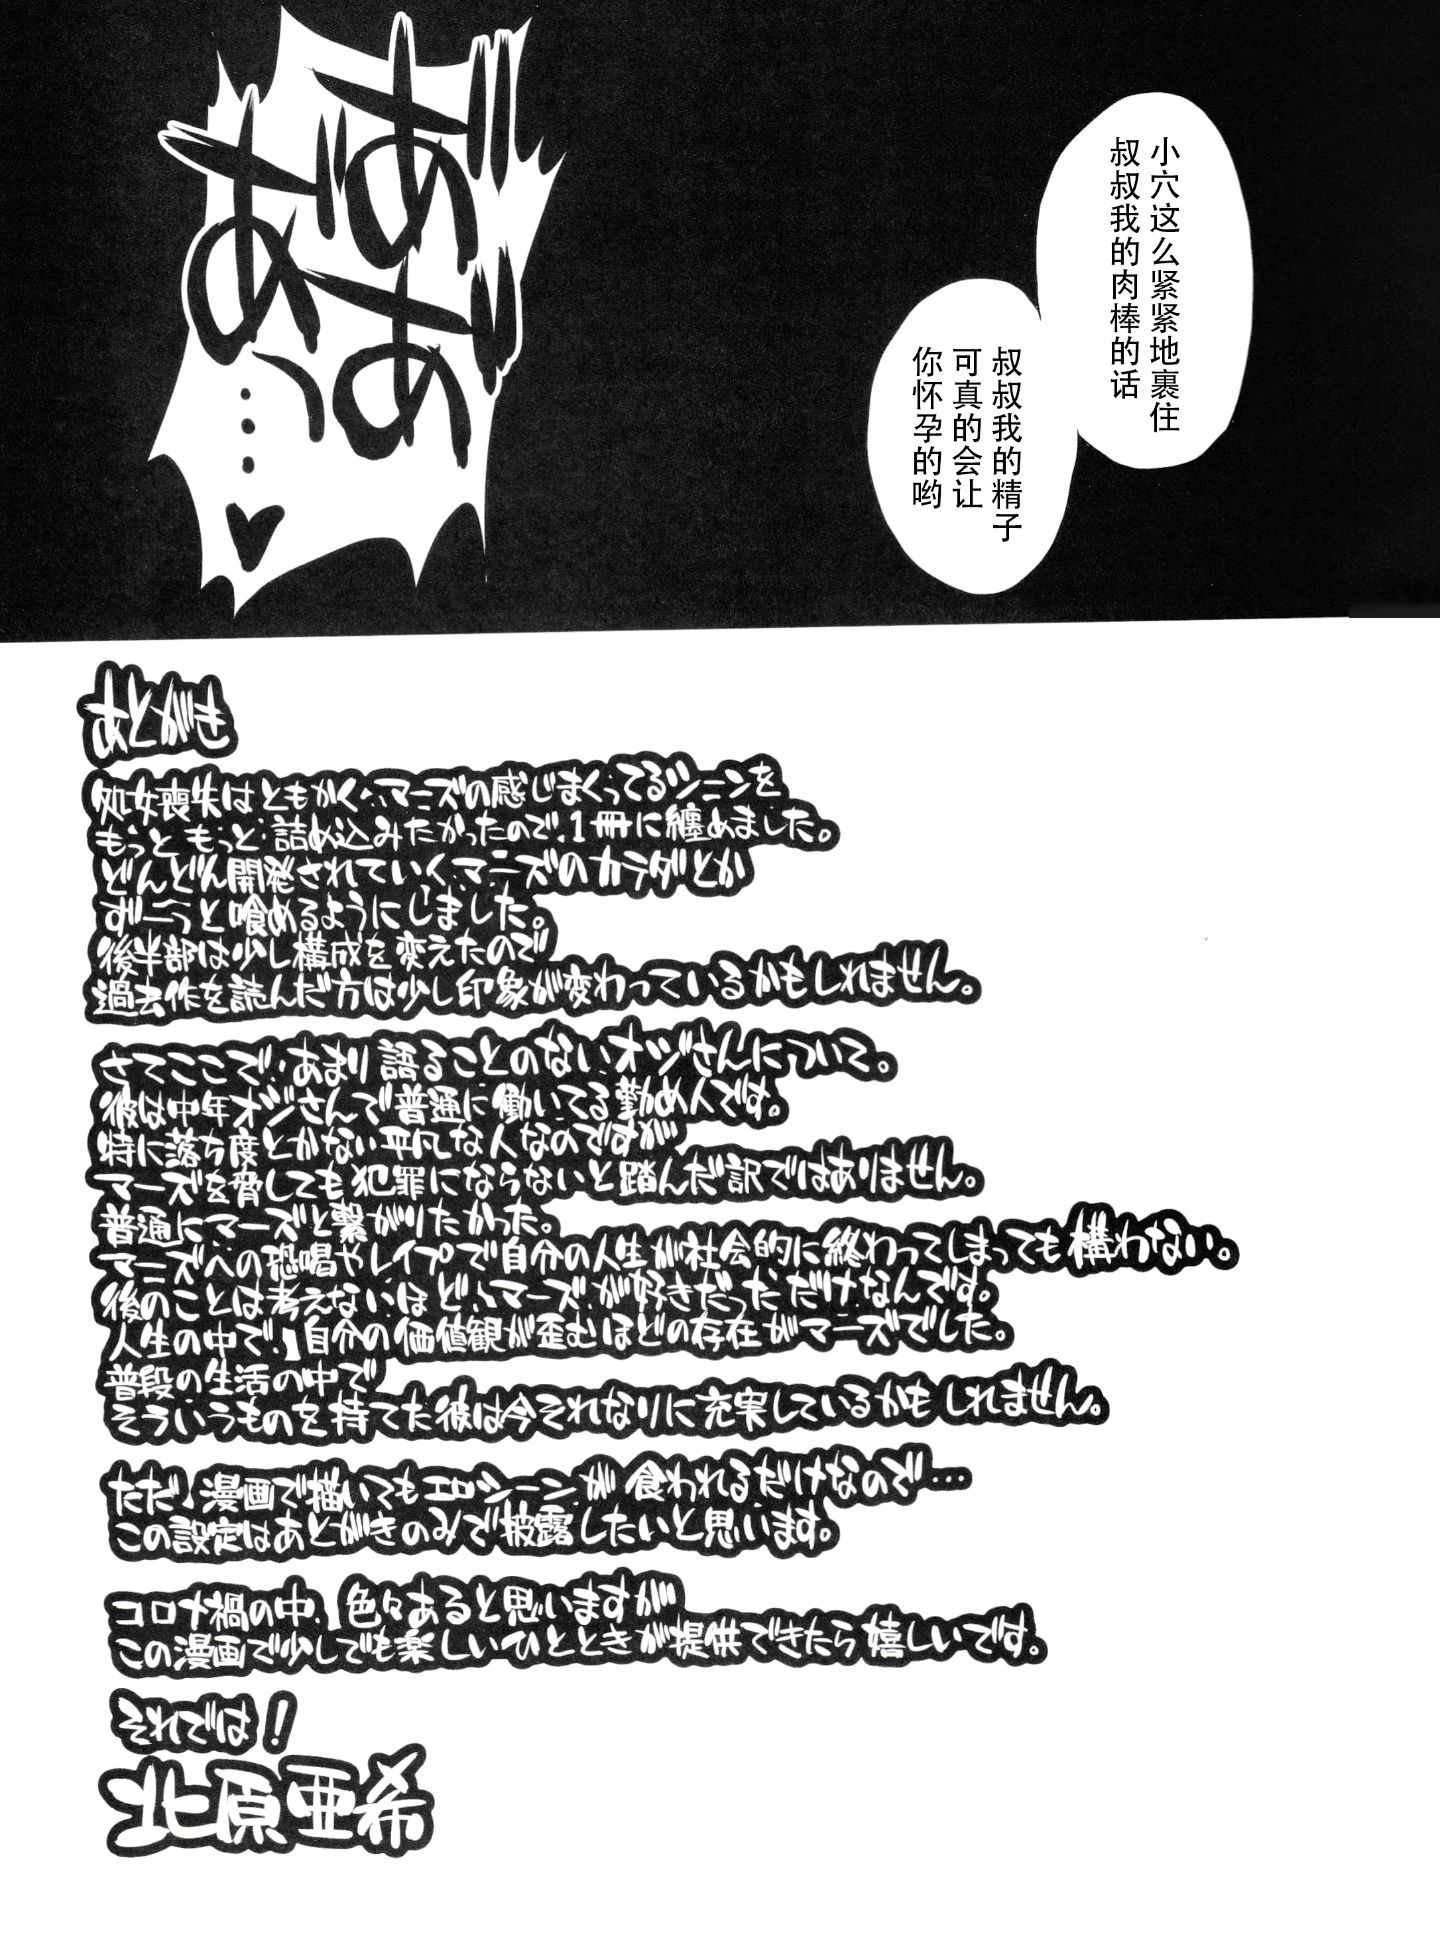 小穴这么紧紧地裹住
叔叔我的肉棒的话
叔叔我的精子
可真的会让
你怀孕的哟
あ゛あ゛
あああっ…♥
あとがき
処女喪失はともかく、マーズの感じまくってるシーンを
もっともっと詰め込みたかったので、1冊に纏めました。
どんどん開発されていくマーズのカラダとか
ずーっと喰めるようにしました。
後半部は少し構成を変えたので
過去作を読んだ方は少し印象が変わっているかもしれません。
さてここで、あまり語ることのないオジさんについて。
彼は中年オジさんで普通に働いてる勤め人です。
特に落ち度とかない平凡な人なのですが、
マーズを脅しても犯罪にならないと踏んだ訳ではありません。
普通にマーズと繋がりたかった。
マーズへの恐喝やレイプで自分の人生が社会的に終わってしまっても構わない。
後のことは考えないほど、マーズが好きだっただけなんです。
人生の中で、自分の価値観が歪むほどの存在がマーズでした。
普段の生活の中で
そういうものを持てた彼は今それなりに充実しているかもしれません。
ただ、漫画で描いてもエロシーンが食われるだけなので…
この設定はあとがきのみで披露したいと思います。
コロナ禍の中、色々あると思いますが
この漫画で少しでも楽しいひとときが提供できたら嬉しいです。
それでは！
北原亜希